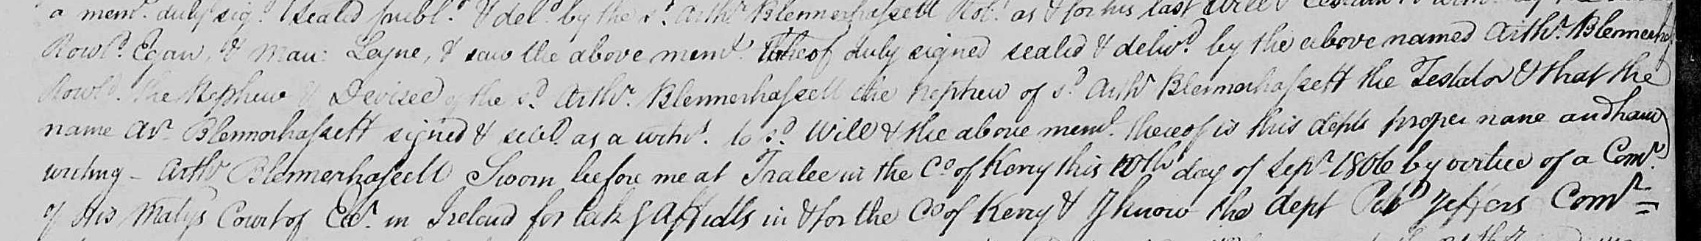 a mem.l duly sig.d sealed publ.d & del.d by the s.d Arth.r Blennerhassett as & for his last Will &
Row.d Egan, & Mau: Leyne, & saw the above mem.l thereof duly signed sealed & deliv.d by the above named Arth.r Blennerhas
Row.d the Nephew & Devisee of the s.d Arth.r Blennerhassett the Nephew of s.d Arth.r Blennerhassett the Testator & that the
name Ar.r Blennerhassett signed & subd. as a witn.s to s.d Will & the above mem.l thereof is this depts proper name and hand
writing – Arth.r Blennerhassett Sworn before me at Tralee in the C.o of Kerry this 10th day of Sep.r 1806 by virtue of a Com.n
of His Matys Court of Exc.r in Ireland for takg Affidts in & for the C.o of Kerry & I know the dept Jeffers Com.r =